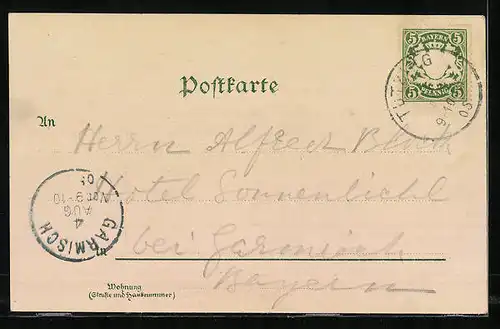 5 BAYERN 5
5 PFENNIG 5
TUTZING
9-10
Postkarte
An
Herrn Alfred
Hotel Sonnenbichl
GARMISCH
4
AUG
Nm 9-10
05
in
bei Garmisch
Bayern
Wohnung
(Straße und Hausnummer)